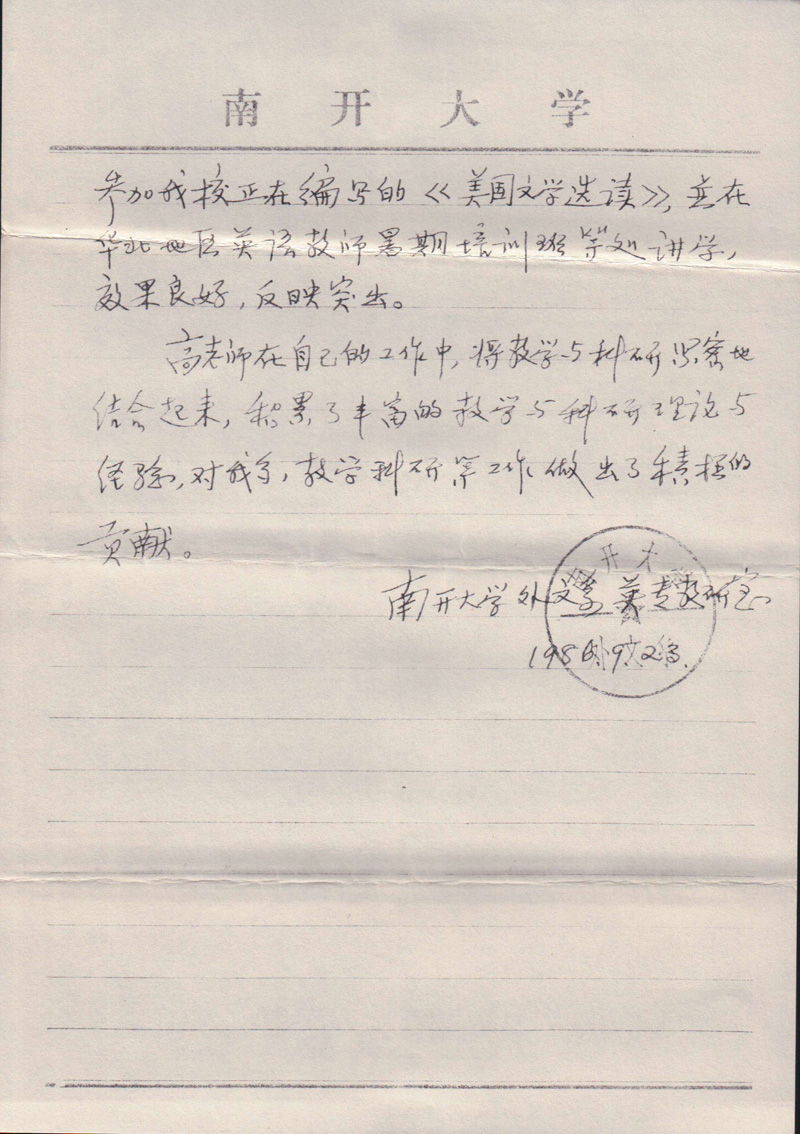 南开大学
参加我校正在编写的《美国文学选读》，并在
华北地区英语教师暑期培训班等处讲学，
效果良好，反映突出。
高老师在自己的工作中，将教学与科研紧密地
结合起来，积累了丰富的教学与科研理论与
经验，对我系，教学科研等工作，做出了积极的
贡献。
南开大学外文系英专教研室
198 9
开大